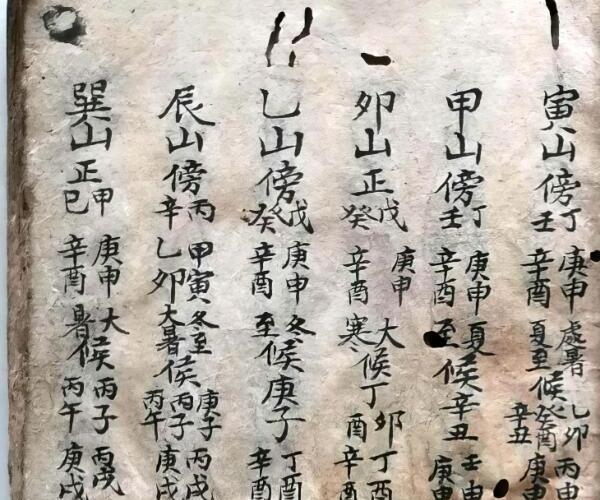 寅山傍丁壬庚申辛酉處暑夏至候乙卯癸酉辛丑丙申庚
甲山傍丁壬庚申辛酉夏至候辛丑壬申庚
乙山傍戊癸庚申辛酉冬至候庚子丁酉辛酉
卯山正戊癸庚申辛酉大寒候丁卯酉丁酉辛酉
辰山傍丙辛甲寅乙卯冬至大暑候庚子丙子丙午丙戌庚戌
巽山正甲己庚申辛酉大暑候丙子丙午丙戌庚戌